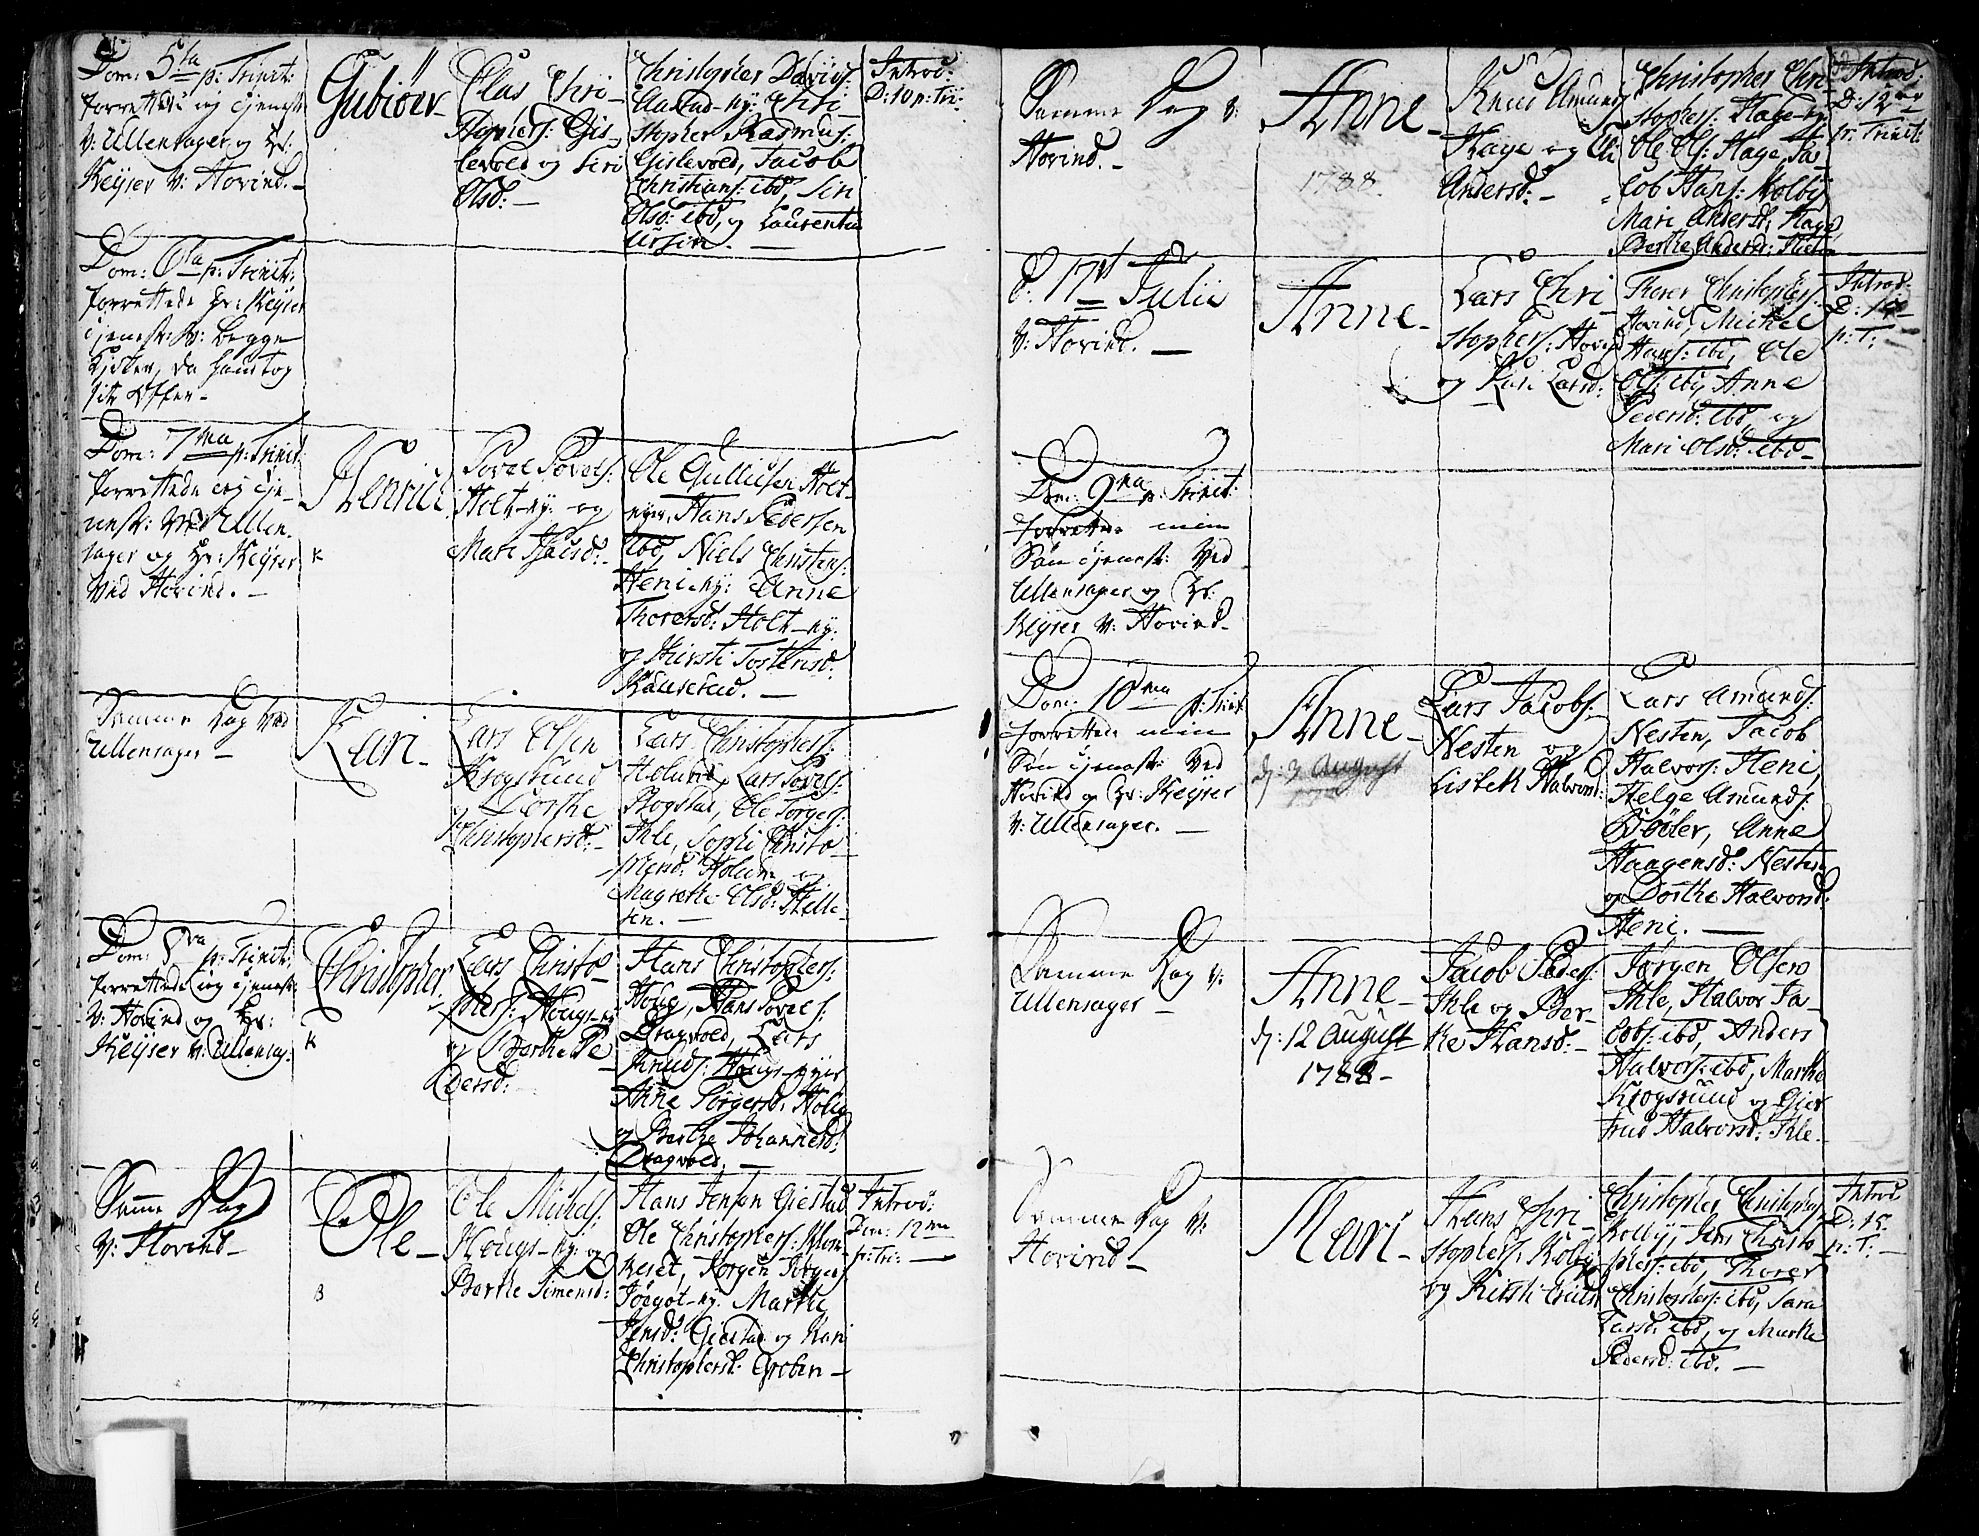 Dom: 5ta p: Trinit:
forrettede jeg tjenest
V: Ullensager og Hr:
Keÿser V: Hovind. -
Gubiör -
Olas Chri-
stophers: Gis-
levold og Siri
Olsd: -
Christopher Davids:
Aastad-ny: Chri
stopher Rasmus:
Gislevold, Jacob
Christians: ibd, Siri
Olsd: ibd, og Laurentia
Ursin. -
Introd:
D: 10 p: Tri:
Dom: 6ta p: Trinit:
forrettede Hr: Keÿser
tjenest: V: begge
Kirker, da
Offer -
Dom: 7ma p: Trinit:
forrettede jeg tje-
nest: Ved Ullen
sager og Hr: Keÿser
Ved Hovind. -
Henric
K
Povel Povels:
Holt-ny: og
Mari
Ole Gullicsen Holt-
nyer, Hans Pedersen
ibd, Niels Christens:
Heni-ny: Anne
Thoresd: Holt-ny:
og Kirsti Tostensd:
-
Samme Dag Ved
Ullensager -
Kari -
Lars Olsen
Krogsrud
og Dorthe
Christophersd: -
Lars Christophers:
Holum, Lars Povels:
Rogstad, Ole Torgers:
Ihle, Sophi Christo-
phersd: Holum og
Magrethe Olsd: Helle-
sen. -
Dom: 8va p: Trinit:
forrettede jeg tjenest:
V: Hovind og Hr:
Keÿser V: Ullensag:
Christopher
K
Lars Christo
phers: Houg-ny
og Berthe Pe
dersd: -
Hans Christophers:
Houg, Hans Povels:
Dragvold, Lars
Knuds: Houg-nyer
Anne Torgersd: Houg
og Berthe Johannesd:
Dragvold. -
Samme Dag
V: Hovind -
Ole -
B
Ole Michels:
Hougs-ny: og
Berthe Simensd:
Hans Jensen Gjestad
Ole Christophers: Klom-
keset, Jørgen Torgers:
-ny: Marthe
Jensd: Gjestad og Kari
Christophersd: Groben -
Introd:
Dom: 12ma
p: Tri: -
Samme Dag V:
Hovind. -
Anne -
1788
Knud Amunds
Hage og Eli
Andersd: -
Christopher Chri
stophers: Hage-ny
Ole Ols: Hage, Ja-
cob Hans: Kolbÿ
Mari Andersd: Hage
Berthe Andersd:
Introd:
D: 12
p: Trinit:
d: 17st Julii
V: Hovind. -
Anne -
Lars Chri
stophers: Hovind
og Kari Larsd:
Thorer Christophers:
Hovind, Michel
Hans: ibd, Ole
Ols: ibd, Anne
Pedersd: ibd og
Mari Olsd: ibd -
Introd:
D:
p: T: -
Dom: 9na p: Trinit:
forrettede min
Søn tjenest: Ved
Ullensager og Hr:
Keÿser V: Hovind -
Dom: 10ma p: Trinit
forrettede min
Søn tjenest: Ved
Hovind og Hr: Keÿser
V: Ullensager. -
Anne -
d: 3 August
Lars Jacobs:
Nesten og
Lisbeth Halvorsd:
Lars Amunds:
Nesten, Jacob
Halvors: Heni,
Helge Amunds:
Bøeler, Anne
Haagensd: Nesten
og Dorthe Halvorsd:
Heni. -
Samme Dag V:
Ullensager -
Anne -
d: 12 August
1788 -
Jacob Peders:
Ihle og Ber-
the Hansd: -
Jørgen Olsen
Ihle, Halvor Ja-
cobs: ibd, Anders
Halvors: ibd, Marthe
Krogsrud og Gier
trud Halvorsd: Ihle -
Samme Dag V:
Hovind -
Mari -
Hans Chri-
stophers: Kolby
og Kirsti
Christopher Christophers
Kolbÿ, Jens Christo
phers: ibd, Thorer
Christophers: ibd, Sara
Larsd: ibd, og Marthe
Pedersd: ibd. -
Introd
D: 15
p: T: -